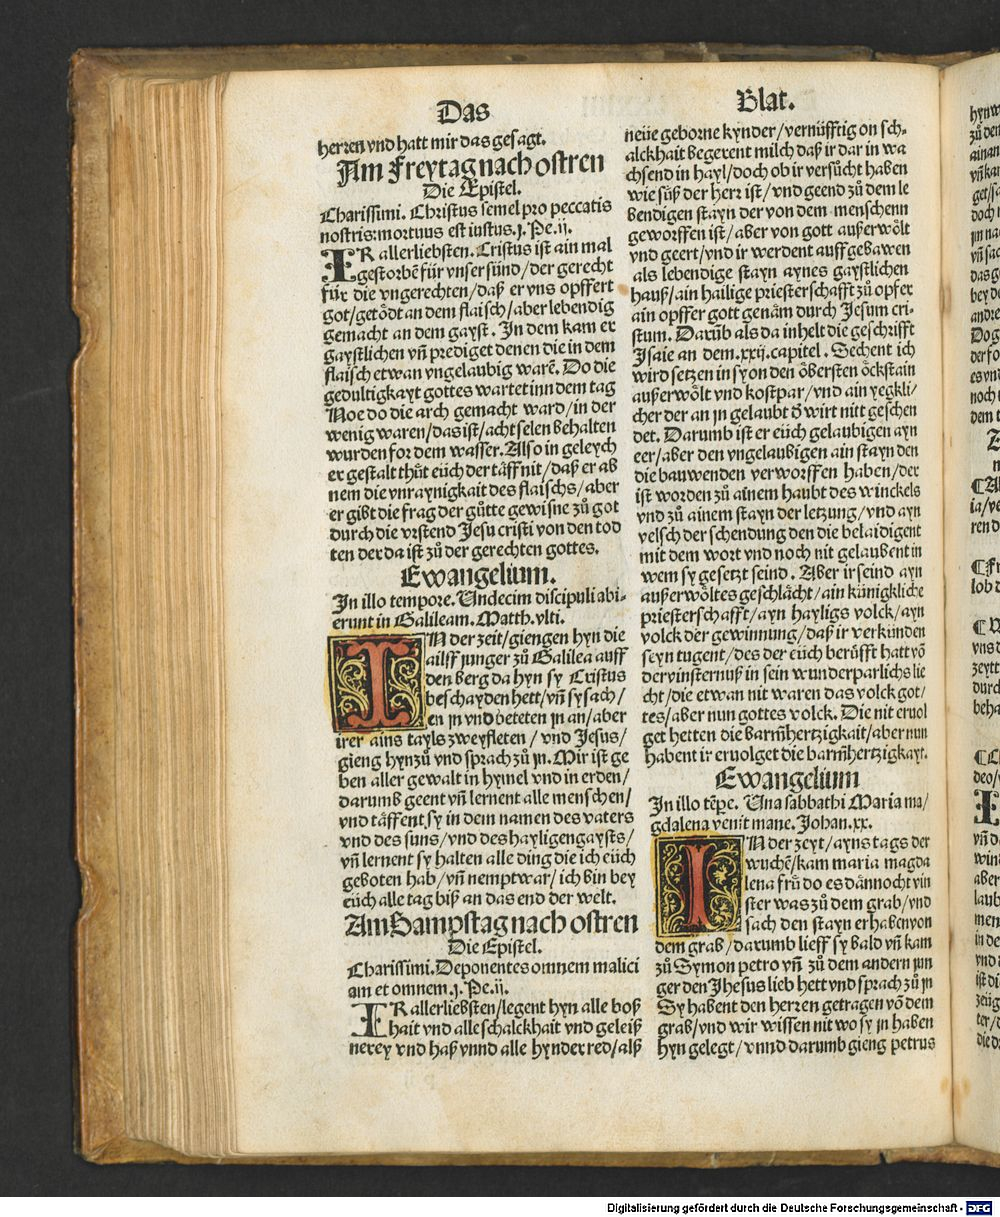 Das
Blat.
herren vnd hatt mir das gesagt.
Am Freytag nach ostren
Die Epistel.
Charissimi. Christus semel pro peccatis
nostris: mortuus est iustus. j. Pe. ij.
IR allerliebsten. Cristus ist ain mal
gestorbē für vnser sünd / der gerecht
für die vngerechten / daß er vns opffert
got / getödt an dem flaisch / aber lebendig
gemacht an dem gayst. In dem kam er
gaystlichen vñ prediget denen die in dem
flaisch etwan vngelaubig warē. Do die
gedultigkayt gottes wartet inn dem tag
Noe do die arch gemacht ward / in der
wenig waren / das ist / acht selen behalten
wurden for dem wasser. Also in geleych
er gestalt thůt eüch der täffnit / daß er ab
nem die vnraynigkait des flaischs / aber
er gibt die frag der gůtte gewisne zů got
durch die vrstend Jesu cristi von den tod
ten der da ist zů der gerechten gottes.
Ewangelium.
In illo tempore. Undecim discipuli abi-
erunt in Galileam. Matth. vlti.
IN der zeit / giengen hyn die
ailff junger zů Galilea auff
den berg da hyn sy Cristus
beschayden hett / vñ sy sach /
en jn vnd beteten jn an / aber
irer ains tayls zweyfleten / vnd Jesus /
gieng hynzů vnd sprach zů jn. Mir ist ge
ben aller gewalt in hymel vnd in erden /
darumb geent vñ lernent alle menschen /
vnd täffent sy in dem namen des vaters
vnd des suns / vnd des hayligen gaysts /
vñ lernent sy halten alle ding die ich eüch
geboten hab / vñ nemptwar / ich bin bey
eüch alle tag biß an das end der welt.
Am Sampstag nach ostren
Die Epistel.
Charissimi. Deponentes omnem malici
am et omnem. j. Pe. ij.
IR allerliebsten / legent hyn alle boß
hait vnd alle schalckhait vnd geleiß
nerey vnd haß vnnd alle hynder red / alß
neüe geborne kynder / vernüfftig on sch-
alckhait begerent milch daß ir dar in wa
chsend in hayl / doch ob ir versůcht haben
wie süß der herr ist / vnd geend zů dem le
bendigen stayn der von dem menschenn
geworffen ist / aber von gott außerwölt
vnd geert / vnd ir werdent auffgebawen
als lebendige stayn aynes gaystlichen
hauß / ain hailige priesterschafft zů opfer
ain opffer gott genäm durch Jesum cri-
stum. Darūb als da inhelt die geschrifft
Isaie an dem. xxij. capitel. Sechent ich
wird setzen in syon den öbersten öckstain
außerwölt vnd kostpar / vnd ain yegkli-
cher der an jn gelaubt d' wirt nitt geschen
det. Darumb ist er eüch gelaubigen ayn
eer / aber den vngelaubigen ain stayn den
die bauwenden verworffen haben / der
ist worden zů ainem haubt des winckels
vnd zů ainem stayn der letzung / vnd ayn
velsch der schendung den die belaidigent
mit dem wort vnd noch nit gelaubent in
wem sy gesetzt seind. Aber ir seind ayn
außerwöltes geschlächt / ain künigkliche
priesterschafft / ayn hayligs volck / ayn
volck der gewinnung / daß ir verkünden
seyn tugent / des der eüch berüfft hatt vō
der vinsternuß in sein wunderparlichs lie
cht / die etwan nit waren das volck got /
tes / aber nun gottes volck. Die nit eruol
get hetten die barm̄hertzigkait / aber nun
habent ir eruolget die barm̄hertzigkayt.
Ewangelium
In illo tēpe. Una sabbathi Maria ma /
gdalena venit mane. Johan. xx.
IN der zeyt / ayns tags der
wuchē / kam maria magda
lena frů do es dānnocht vin
ster was zů dem grab / vnd
sach den stayn erhaben von
dem grab / darumb lieff sy bald vñ kam
zů Symon petro vñ zů dem andern jun
ger den Jhesus lieb hett vnd sprach zů jn
Sy habent den herren getragen vō dem
grab / vnd wir wissen nit wo sy jn haben
hyn gelegt / vnnd darumb gieng petrus
Digitalisierung gefördert durch die Deutsche Forschungsgemeinschaft - DFG